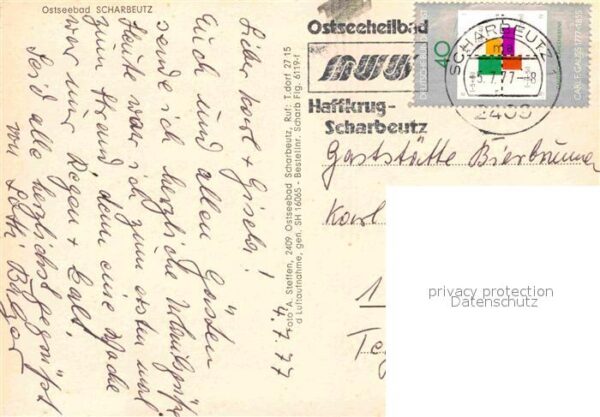 Ostseebad SCHARBEUTZ
Lieber Karl + Gisela!
Euch und allen Gästen
sende ich herzliche Urlaubsgrüße
Heute war ich zum ersten mal
zum Strand denn eine Woche
war nur Regen + kalt.
Seid alle herzlichst gegrüßt
von Lotti
4.7.77
Foto A. Steffen, 2409 Ostseebad Scharbeutz, Ruf: T.dorf 27 15
d Luftaufnahme, gen. SH 1606S - Bestellnr. Scharb Flg. 6119-f
Ostseeheilbad
Haffkrug-
Scharbeutz
SCHARBEUTZ 1
5.7.77-8
2409
40
CARL F. GAUSS 1777-1855
Gaststätte Bierbrunnen
Karl
1
Te
privacy protection
Datenschutz